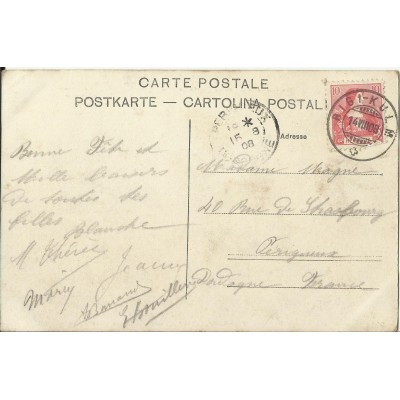 CARTE POSTALE
POSTKARTE — CARTOLINA POSTAL
10
RIGI-KULM
14.VIII.08
Adresse
Bonne Fête et
Mille baisers
de toutes les
filles
Blanche
M. Thérèse
Jeanne
Marie
Madame Magne
40 Rue de Strasbourg
Périgueux
Dordogne France